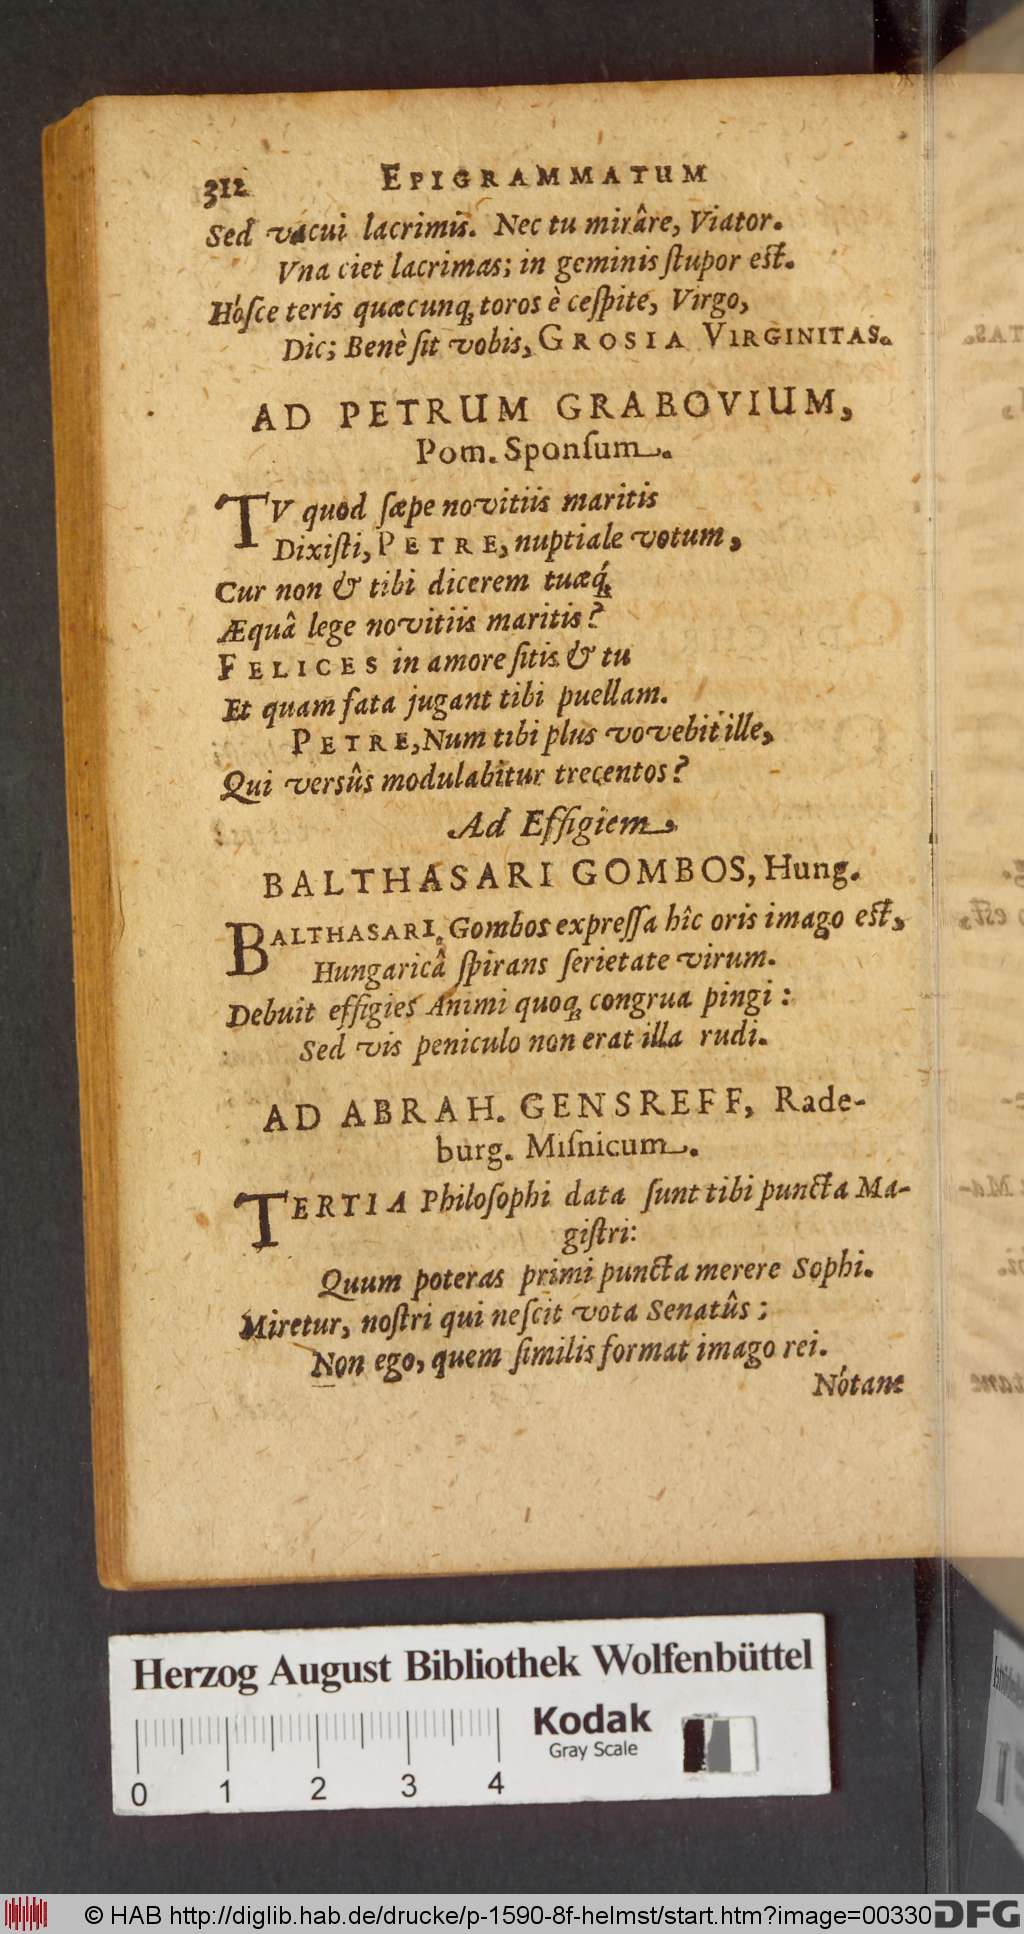 312 EPIGRAMMATUM
Sed vacui lacrimis. Nec tu mirâre, Viator.
Vna ciet lacrimas; in geminis ſtupor est.
Hóſce teris quæcunq; toros è ceſpite, Virgo,
Dic; Benè ſit vobis, GROSIA VIRGINITAS.
AD PETRUM GRABOVIUM,
Pom. Sponſum.
TV quod ſæpe novitiis maritis
Dixiſti, PETRE, nuptiale votum,
Cur non & tibi dicerem tuæq́;
Æquâ lege novitiis maritis?
FELICES in amore ſitis & tu
Et quam fata jugant tibi puellam.
PETRE, Num tibi plus vovebit ille,
Qui versûs modulabitur trecentos?
Ad Effigiem
BALTHASARI GOMBOS, Hung.
BALTHASARI, Gombos expreſſa hîc oris imago est,
Hungaricâ ſpirans ſerietate virum.
Debuit effigies Animi quoq; congrua pingi:
Sed vis peniculo non erat illa rudi.
AD ABRAH. GENSREFF, Rade-
burg. Miſnicum.
TERTIA Philoſophi data ſunt tibi puncta Ma-
giſtri:
Quum poteras primi puncta merere Sophi.
Miretur, noſtri qui neſcit vota Senatûs;
Non ego, quem ſimilis format imago rei.
Nótane
Herzog August Bibliothek Wolfenbüttel
Kodak
Gray Scale
0 1 2 3 4
© HAB http://diglib.hab.de/drucke/p-1590-8f-helmst/start.htm?image=00330 DFG